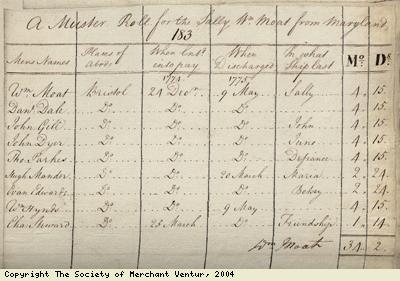 A Muster Roll for the Sally Wm Moat from Maryland
183
Mens Names Places of Abode When Entd into pay When Discharged In what Ship last Mo. Ds.
1774 1775
Wm Moat Bristol 24 Decr. 9 May Sally 4. 15.
Danl Dale Do. Do. Do. 4. 15.
John Gill Do. Do. Do. John 4. 15.
John Dyer Do. Do. Do. Jano 4. 15.
Tho Parkes Do. Do. Do. Defiance 4. 15.
Hugh Mander Do. Do. 20 March Maria 2. 24.
Evan Edwards Do. Do. Do. Betsy 2. 24.
Wm Hynds Do. Do. 9 May 4. 15.
Chas Steward Do. 25 March Do. Friendship 1. 14
Wm Moat 34. 2.
Copyright The Society of Merchant Ventur, 2004